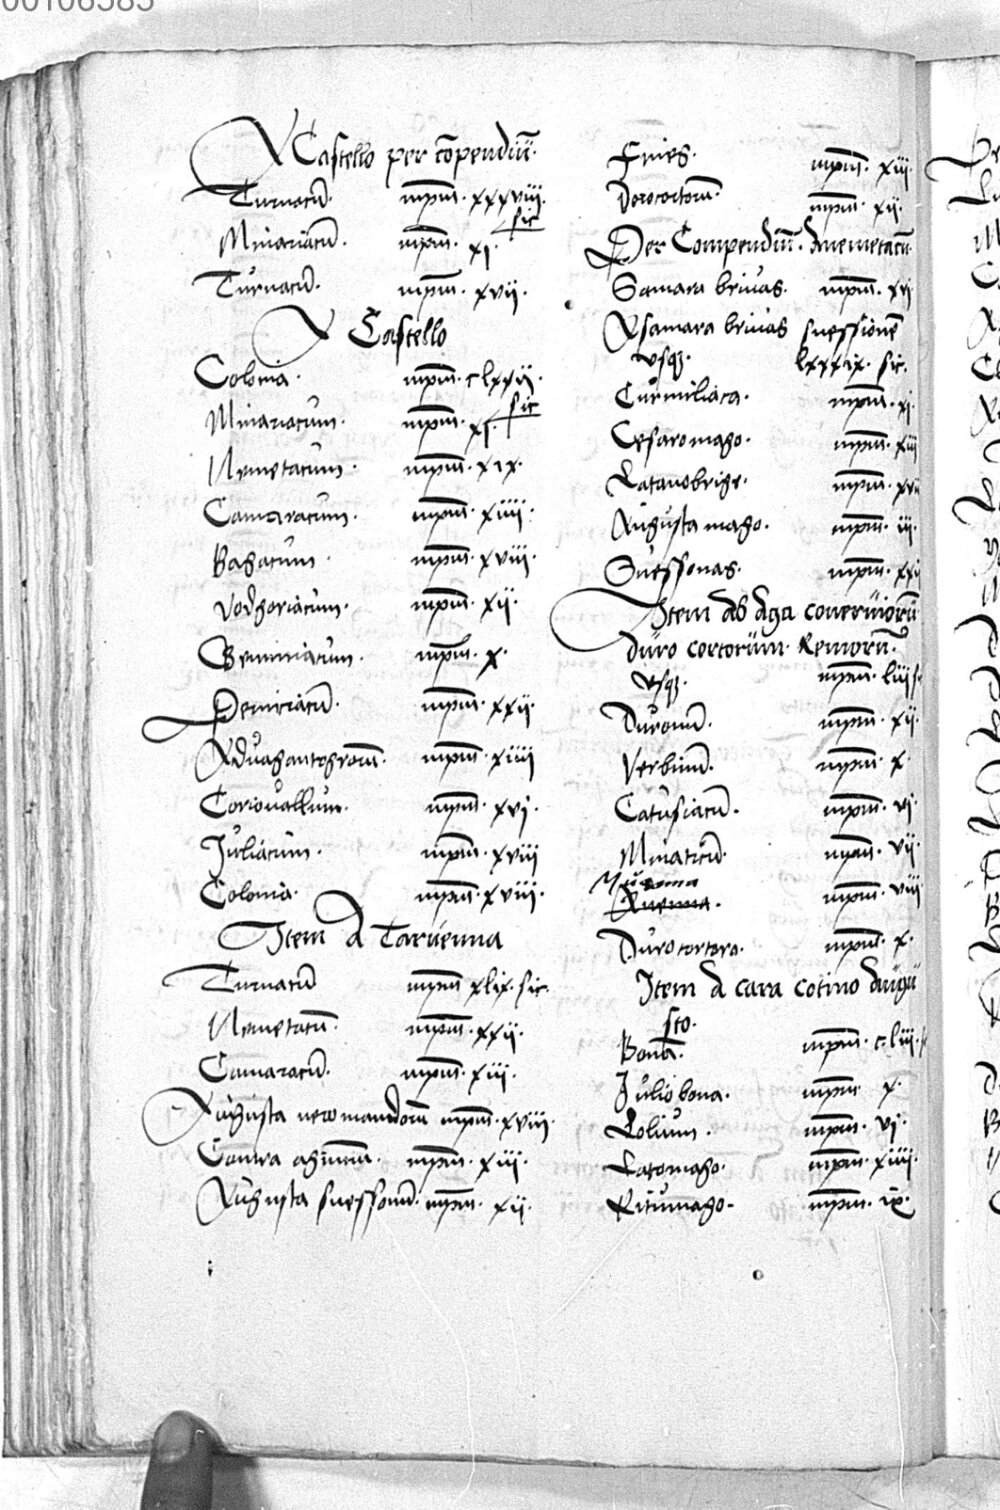 00106385
A Castello per cōpendiū.
Turnacū. mpm. xxxviii. sic
Minariacū. mpm. xi.
Turnacū. mpm. xvii.
A Castello
Colonia. mpm. clxxii. sic
Minariacum. mpm. xi.
Nemetacum. mpm. xix.
Camaracum. mpm. xiiii.
Bagacum. mpm. xviii.
Vodgoriacum. mpm. xii.
Geminiacum. mpm. x.
Perniciacū. mpm. xxii.
Aduagantogrorū. mpm. xiiii
Coriouallum. mpm. xvi.
Juliacum. mpm. xviii
Colonia. mpm. xviii.
Item A Taruenna
Turnacū mpm xlix. sic.
Nemetacū. mpm. xxii.
Camaracū. mpm. xiii.
Augusta ueromandorū mpm. xviii.
Contra aginnū. mpm. xiii.
Augusta suessonū. mpm. xii.
Fines. mpm. xiii.
Dorocortorū. mpm. xii.
Per Compendiū. anemetacū.
Samara brivas. mpm. xvi
A samara brivas suessionē
usq. lxxxix. sic.
Curmiliaca. mpm. xi.
Cesaromago. mpm. xiii
Latanobrige. mpm. xvii
Augusta mago. mpm. iii.
Suessonas. mpm. xxi
Item ab aga conerviorū
duro cortorum. Remorū.
usq. mpm. liii s.
Duronū. mpm. xii.
Verbinū. mpm. x.
Catusiacū. mpm. vi
Minaticū. mpm. vii.
mpm. viii
Durocortoro. mpm. x.
Item A cara cotino augu
sto.
Bonā. mpm. c. liii.
Julio bona. mpm. x.
Lolium. mpm. vi.
Latomago. mpm. xiiii.
Ritumago. mpm. ix